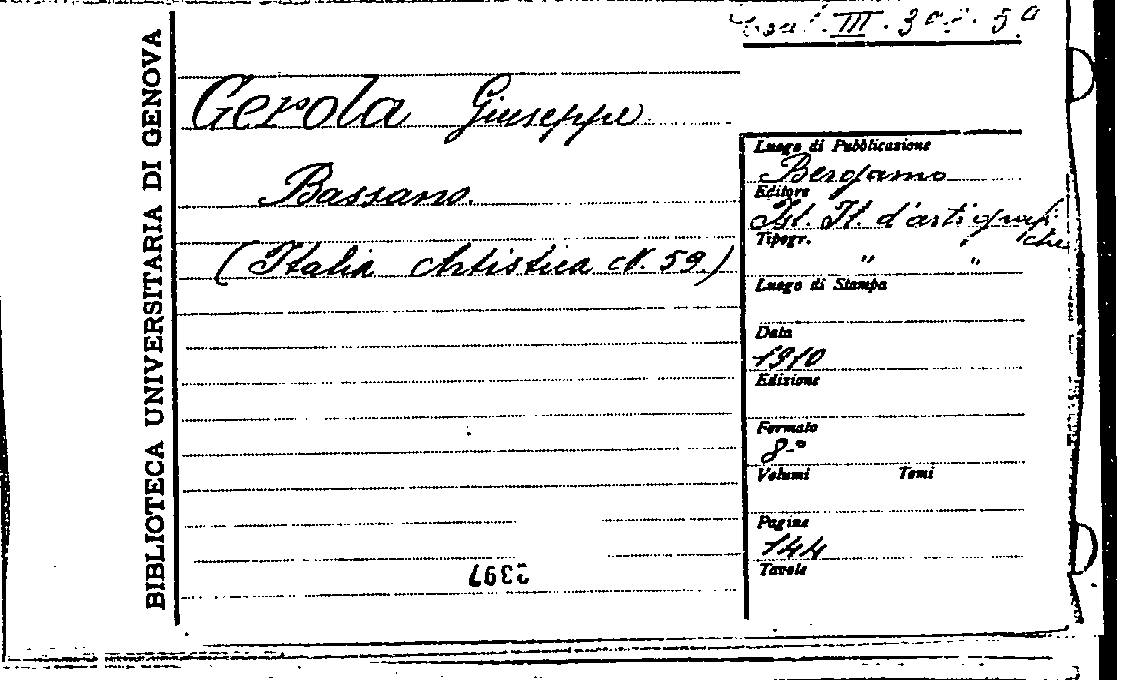 BIBLIOTECA UNIVERSITARIA DI GENOVA
III. 5
Gerola Giuseppe
Bassano.
(Italia Artistica N. 59.)
Luogo di Pubblicazione
Bergamo
Editore
Ist. It. d'arti grafiche
Tipogr.
" "
Luogo di Stampa
Data
1910
Edizione
Formato
8-°
Volumi Tomi
Pagine
144
Tavole
2397